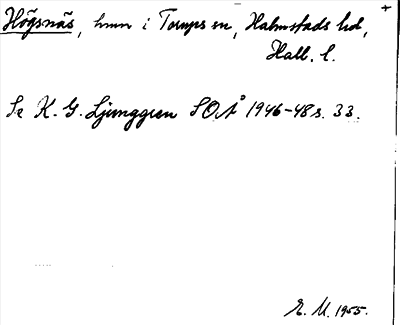 Högsnäs, hmn i Torups sn, Halmstads hd,
Hall. l.
Se K. G. Ljunggren SOÅ 1946-48 s. 33.
E. M. 1955.